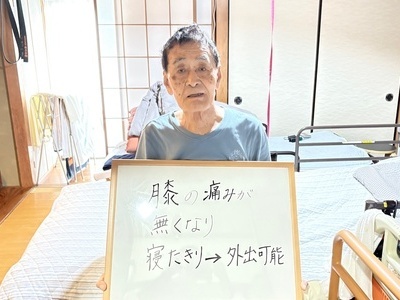 膝の痛みが
無くなり
寝たきり→外出可能